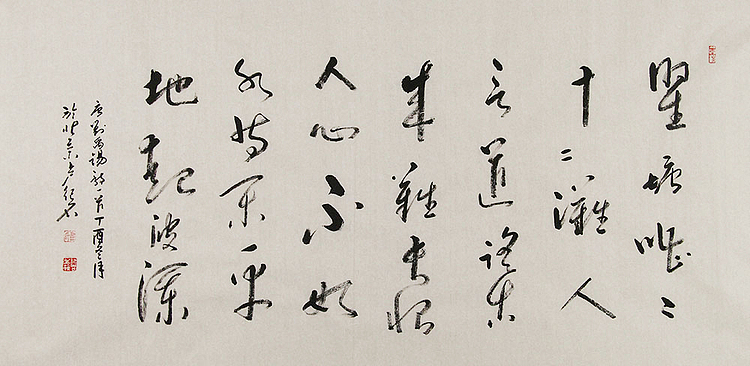 瞿塘嘈〻
十二灘人
言道路古
来難长恨
人心不如
水等闲平
地起波瀾
唐刘禹锡诗一首丁酉冬月
於北京